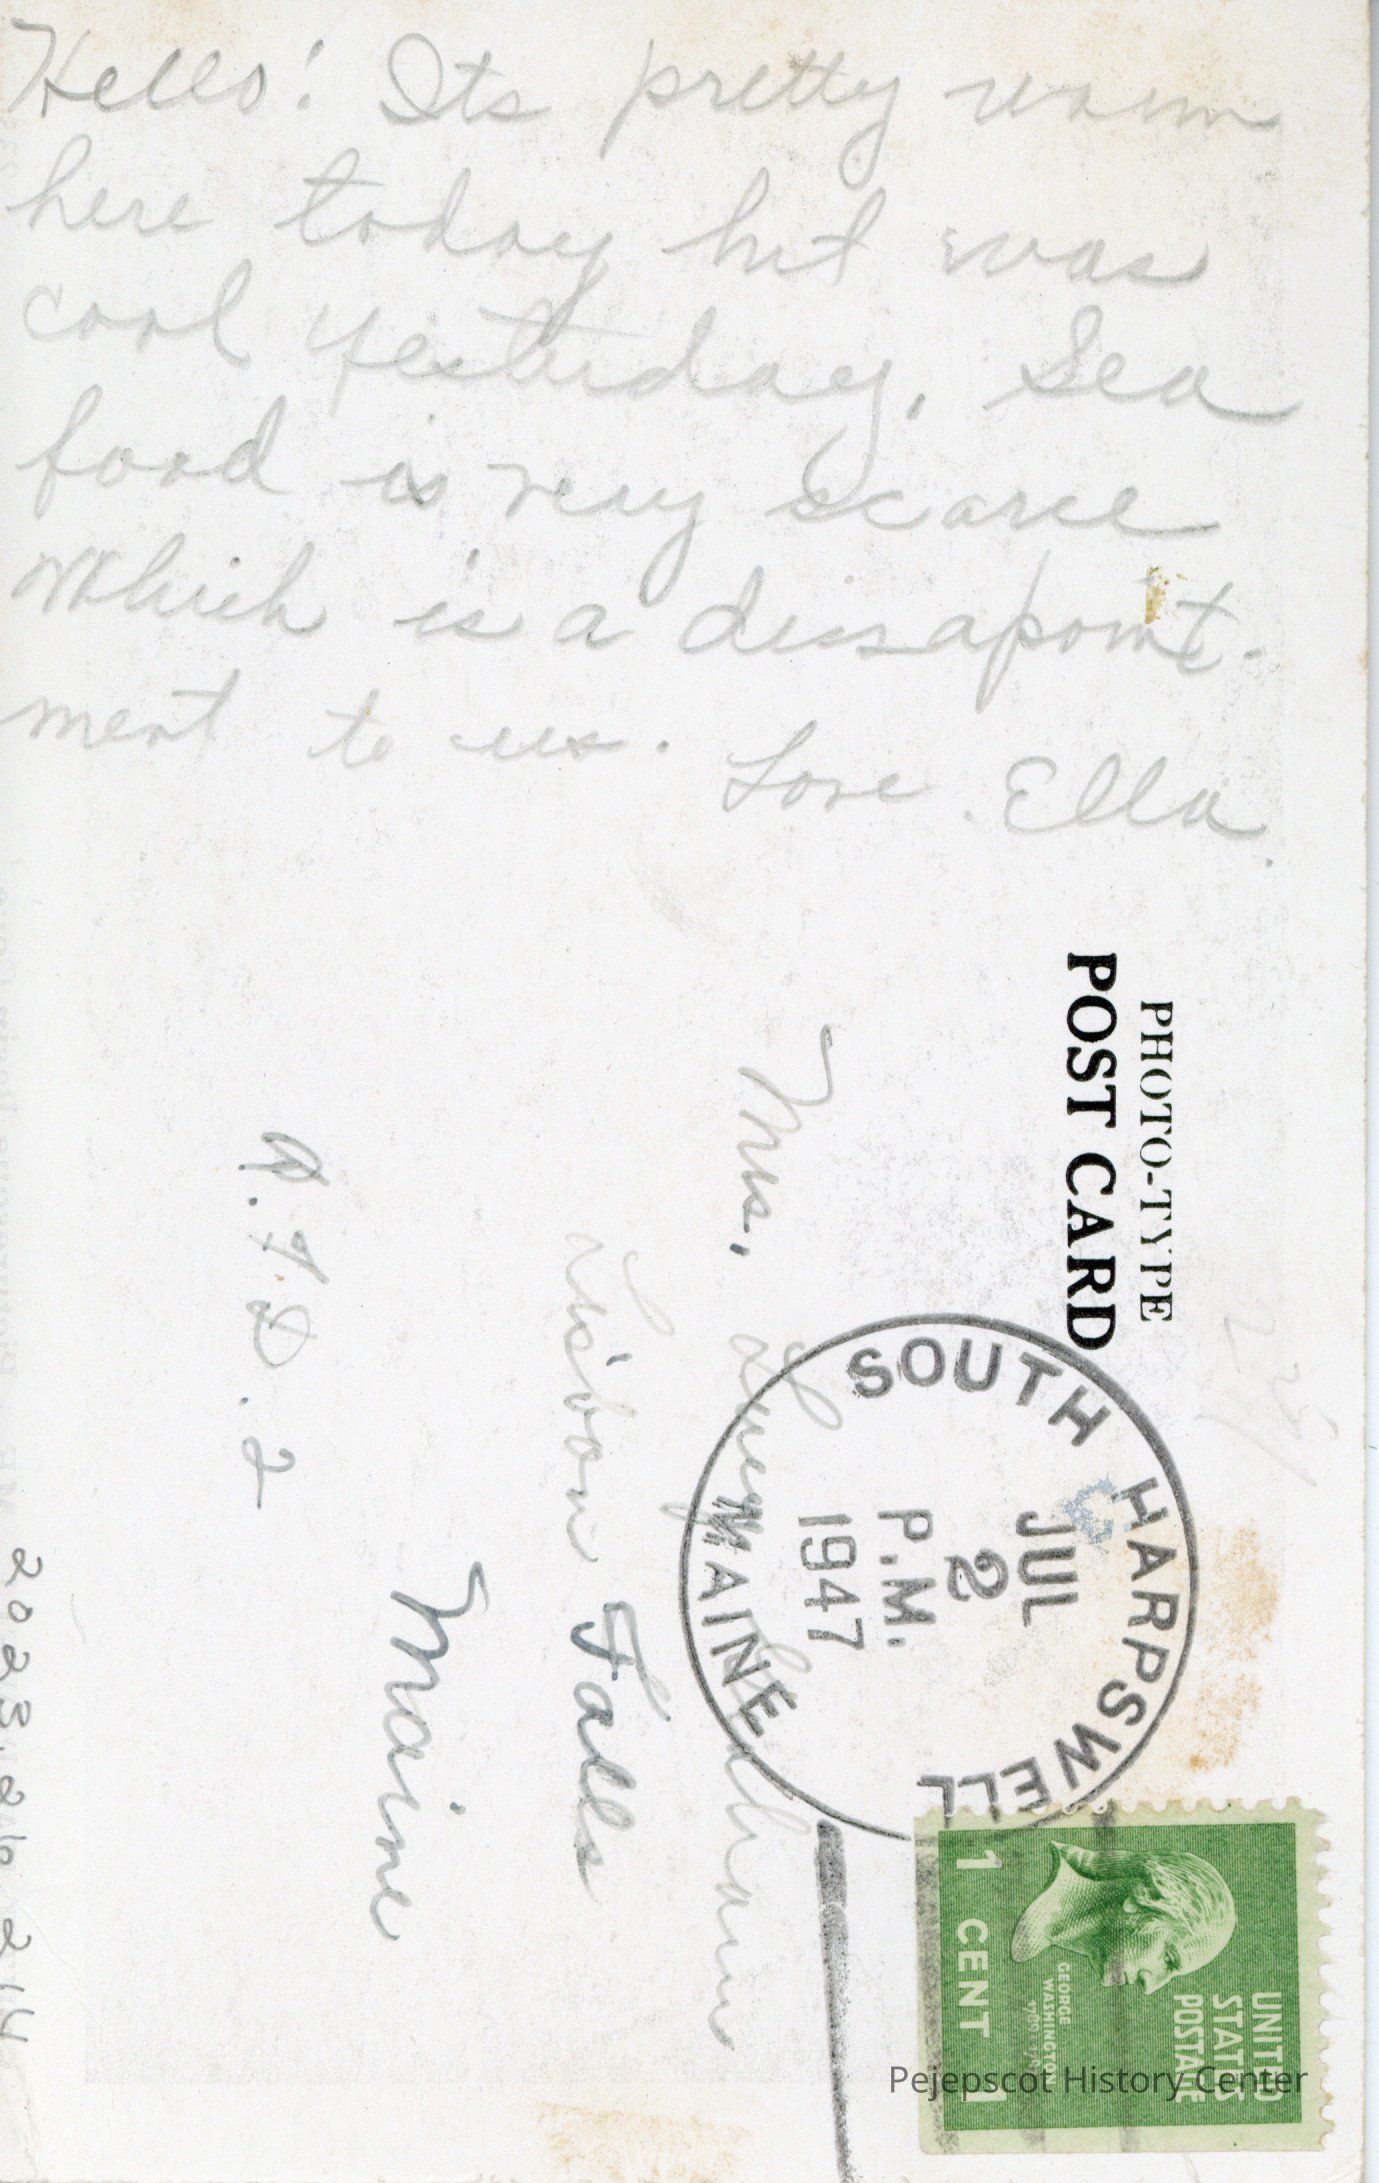 Hello! Its pretty warm
here today but was
cool yesturday. Sea
food is very scarce
which is a dissapoint-
ment to us. Love. Ella.
PHOTO-TYPE
POST CARD
SOUTH HARPSWELL
JUL
2
P.M.
1947
MAINE
UNITED
STATES
POSTAGE
GEORGE
WASHINGTON
1 CENT 1
Mrs.
Lisbon Falls
Maine
R.F.D. 2
2023.26.214
Pejepscot History Center